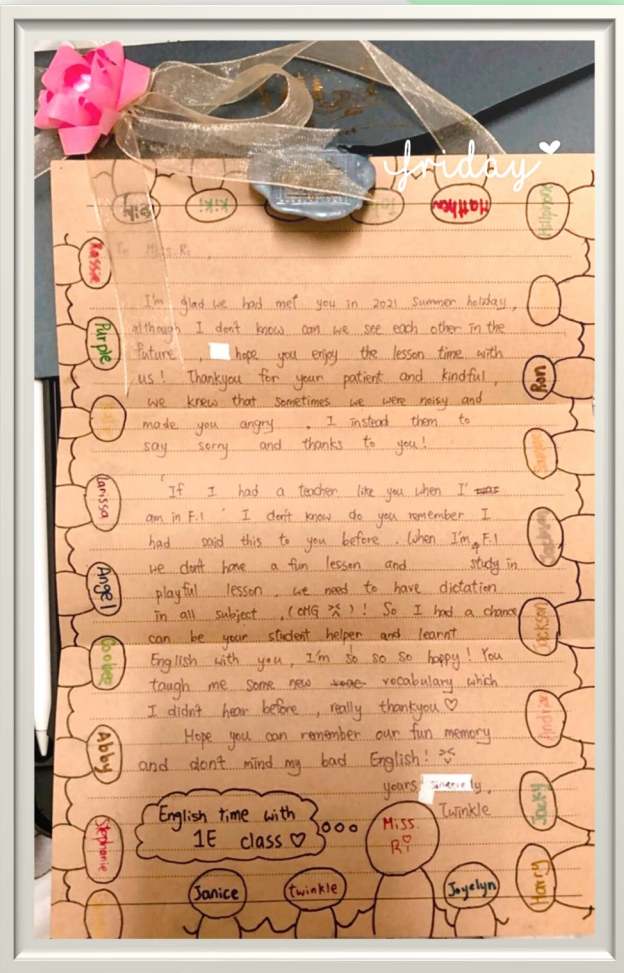 friday
Kiki
Matthew
To Miss. Ri,
Kassie
I'm glad we had met you in 2021 summer holiday,
although I don't know can we see each other in the
Purple
future , hope you enjoy the lesson time with
us! Thankyou for your patient and kindful,
Ron
we knew that sometimes we were noisy and
made you angry . I instead them to
say sorry and thanks to you!
'If I had a teacher like you when I' was
Larissa
am in F.1 ' I don't know do you remember I
had said this to you before . When I'm F.1
we don't have a fun lesson and study in
Angel
playful lesson , we need to have dictation
in all subject , (OMG >.<)! So I had a chance
Jackson
can be your student helper and learnt
Coobee
English with you, I'm so so so happy! You
taugh me some new vocabulary which
I didn't hear before , really thankyou ♡
Hope you can remember our fun memory
Abby
and don't mind my bad English!
yours sincerely,
Twinkle
Jacky
English time with
1E class ♡
Miss.
Ri
Stephanie
Harry
Janice
twinkle
Joyelyn